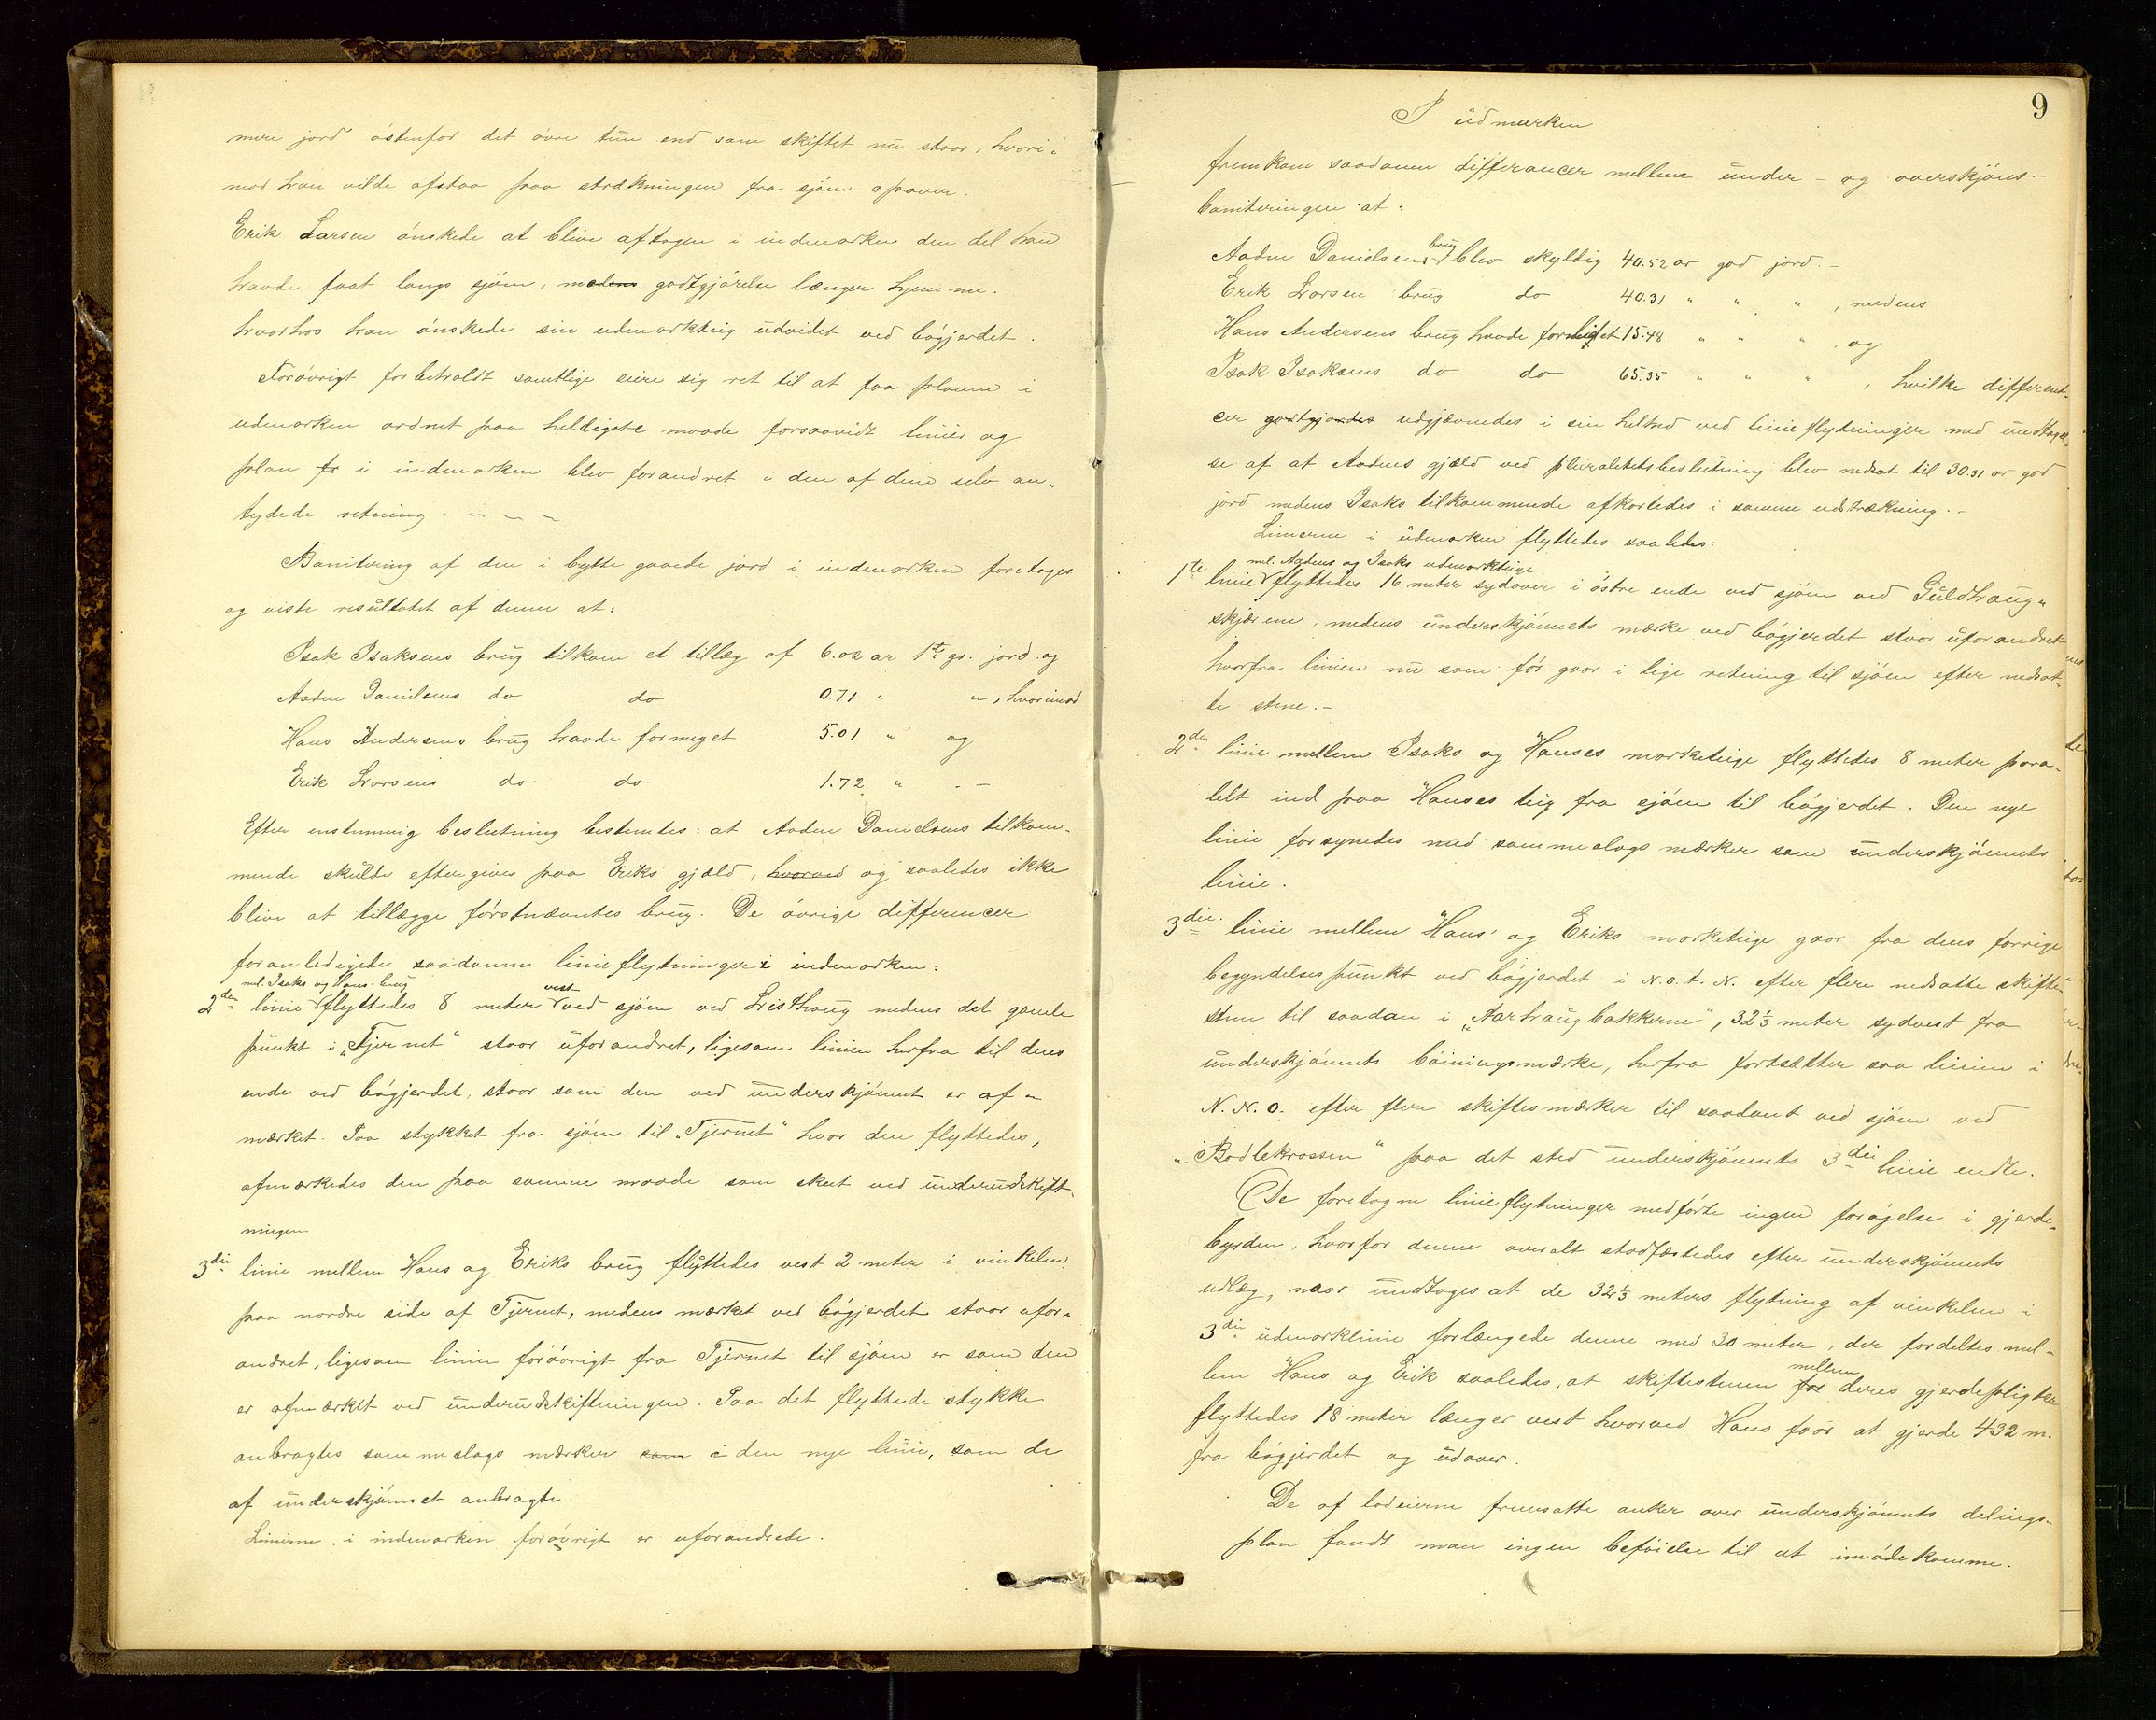 mere jord östenfor det övre tun end som skiftet nu staar, hvori-
mod han vilde afstaa paa strækningen fra sjöen opover.
Erik Larsen önskede at blive aftagen i indmarken den del han
havde faat langs sjöen, medens godtgjörelse længer hjemme.
hvorhos han önskede sin udmarkteig udvidet ved bögjerdet.
Forövrigt forbeholdt samtlige eiere sig ret til at faa planen i
udmarken ordnet paa heldigste maade forsaavidt linier og
plan fr i indmarken blev forandret i den af dem selv an-
tydede retning. — — —
Bonitering af den i bytte gaaede jord i indmarken foretoges
og viste resultatet af denne at:
Isak Isaksens brug tilkom et tillæg af 6.02 ar 1ste gr. jord og
Aadne Danielsens do do 0.71 " ", hvorimod
Hans Andersens brug havde formeget 5.01 " og
Erik Larsens do do 1.72 " . —
Efter enstemmig beslutning bestemtes: at Aadne Danielsens tilkom-
mende skulde eftergives paa Eriks gjæld, hvorved og saaledes ikke
blive at tillægge förstnævntes brug. De övrige differencer
foranledigede saadanne linieflytninger i indmarken:
ml. Isaks og Hans brug
2den linie flyttedes 8 meter vest ved sjöen ved Listhaug medens det gamle
punkt i „Tjernet" staar uforandret, ligesom linien herfra til dens
ende ved bögjerdet, staar som den ved underskjönnet er af-
mærket. Paa stykket fra sjöen til „Tjernet" hvor den flyttedes,
afmærkedes den paa samme maade som skeet ved underudskift-
ningen
3die linie mellem Hans og Eriks brug flyttedes vest 2 meter i vinkelen
paa nordre side af Tjernet, medens mærket ved bögjerdet staar ufor-
andret, ligesom linien forövrigt fra Tjernet til sjöen er som den
er afmærket ved underudskiftningen. Paa det flyttede stykke
anbragtes sammeslags mærker som i den nye linie, som de
af underskjönnet anbragte.
Linierne i indmarken forövrigt er uforandrede.
9
I udmarken
fremkom saadanne differancer mellem under- og overskjöns-
boniteringen at:
Aadne Danielsens brug blev skyldig 40.52 ar god jord. —
Erik Larsen brug do 40.31 " " " , medens
Hans Andersens brug havde forlidet 15.48 " " " , og
Isak Isaksens do do 65.35 " " " , hvilke different-
cer godtgjordes udgjævnedes i sin helhed ved linieflytninger med undtagel-
se af at Aadnes gjæld ved pluralitetsbeslutning blev nedsat til 30.31 ar god
jord medens Isaks tilkommende afkortedes i samme udstrækning. —
Linierne i udmarken flyttedes saaledes:
ml. Aadnes og Isaks udmarkteige
1ste linie flyttedes 16 meter sydover i östre ende ved sjöen ved Guldhaug-
skjærene, medens underskjönnets mærke ved bögjerdet staar uforandret
hvorfra linien nu som för gaar i lige retning til sjöen efter nedsat-
te stene. —
2den linie mellem Isaks og Hanses markteige flyttedes 8 meter para-
lelt ind paa Hanses teig fra sjöen til bögjerdet. Den nye
linie forsynedes med sammeslags mærker som underskjönnets
linie.
3die linie mellem Hans' og Eriks markteige gaar fra dens forrige
begyndelsespunkt ved bögjerdet i N.o.t.N. efter flere nedsatte skifte-
stene til saadan i „Aarhaugbakkerne", 32⅓ meter sydvest fra
underskjönnets böiningsmærke, herfra fortsætter saa linien i
N.N.O. efter flere skiftesmærker til saadant ved sjöen ved
„Bodlekrossen" paa det sted underskjönnets 3die linie endte.
De foretagne linieflytninger medförte ingen forögelse i gjerde-
byrden, hvorfor denne overalt stadfæstedes efter underskjönnets
udlæg, naar undtages at de 32⅓ meters flytning af vinkelen i
3die udmarklinie forlængede denne med 30 meter, der fordeltes mel-
lem Hans og Erik saaledes, at skiftestenen for mellem deres gjerdepligter
flyttedes 18 meter længer vest hvorved Hans faar at gjerde 432 m.
fra bögjerdet og udover.
De af lodeierne fremsatte anker over underskjönnets delings-
plan fandt man ingen beföielse til at imödekomme.